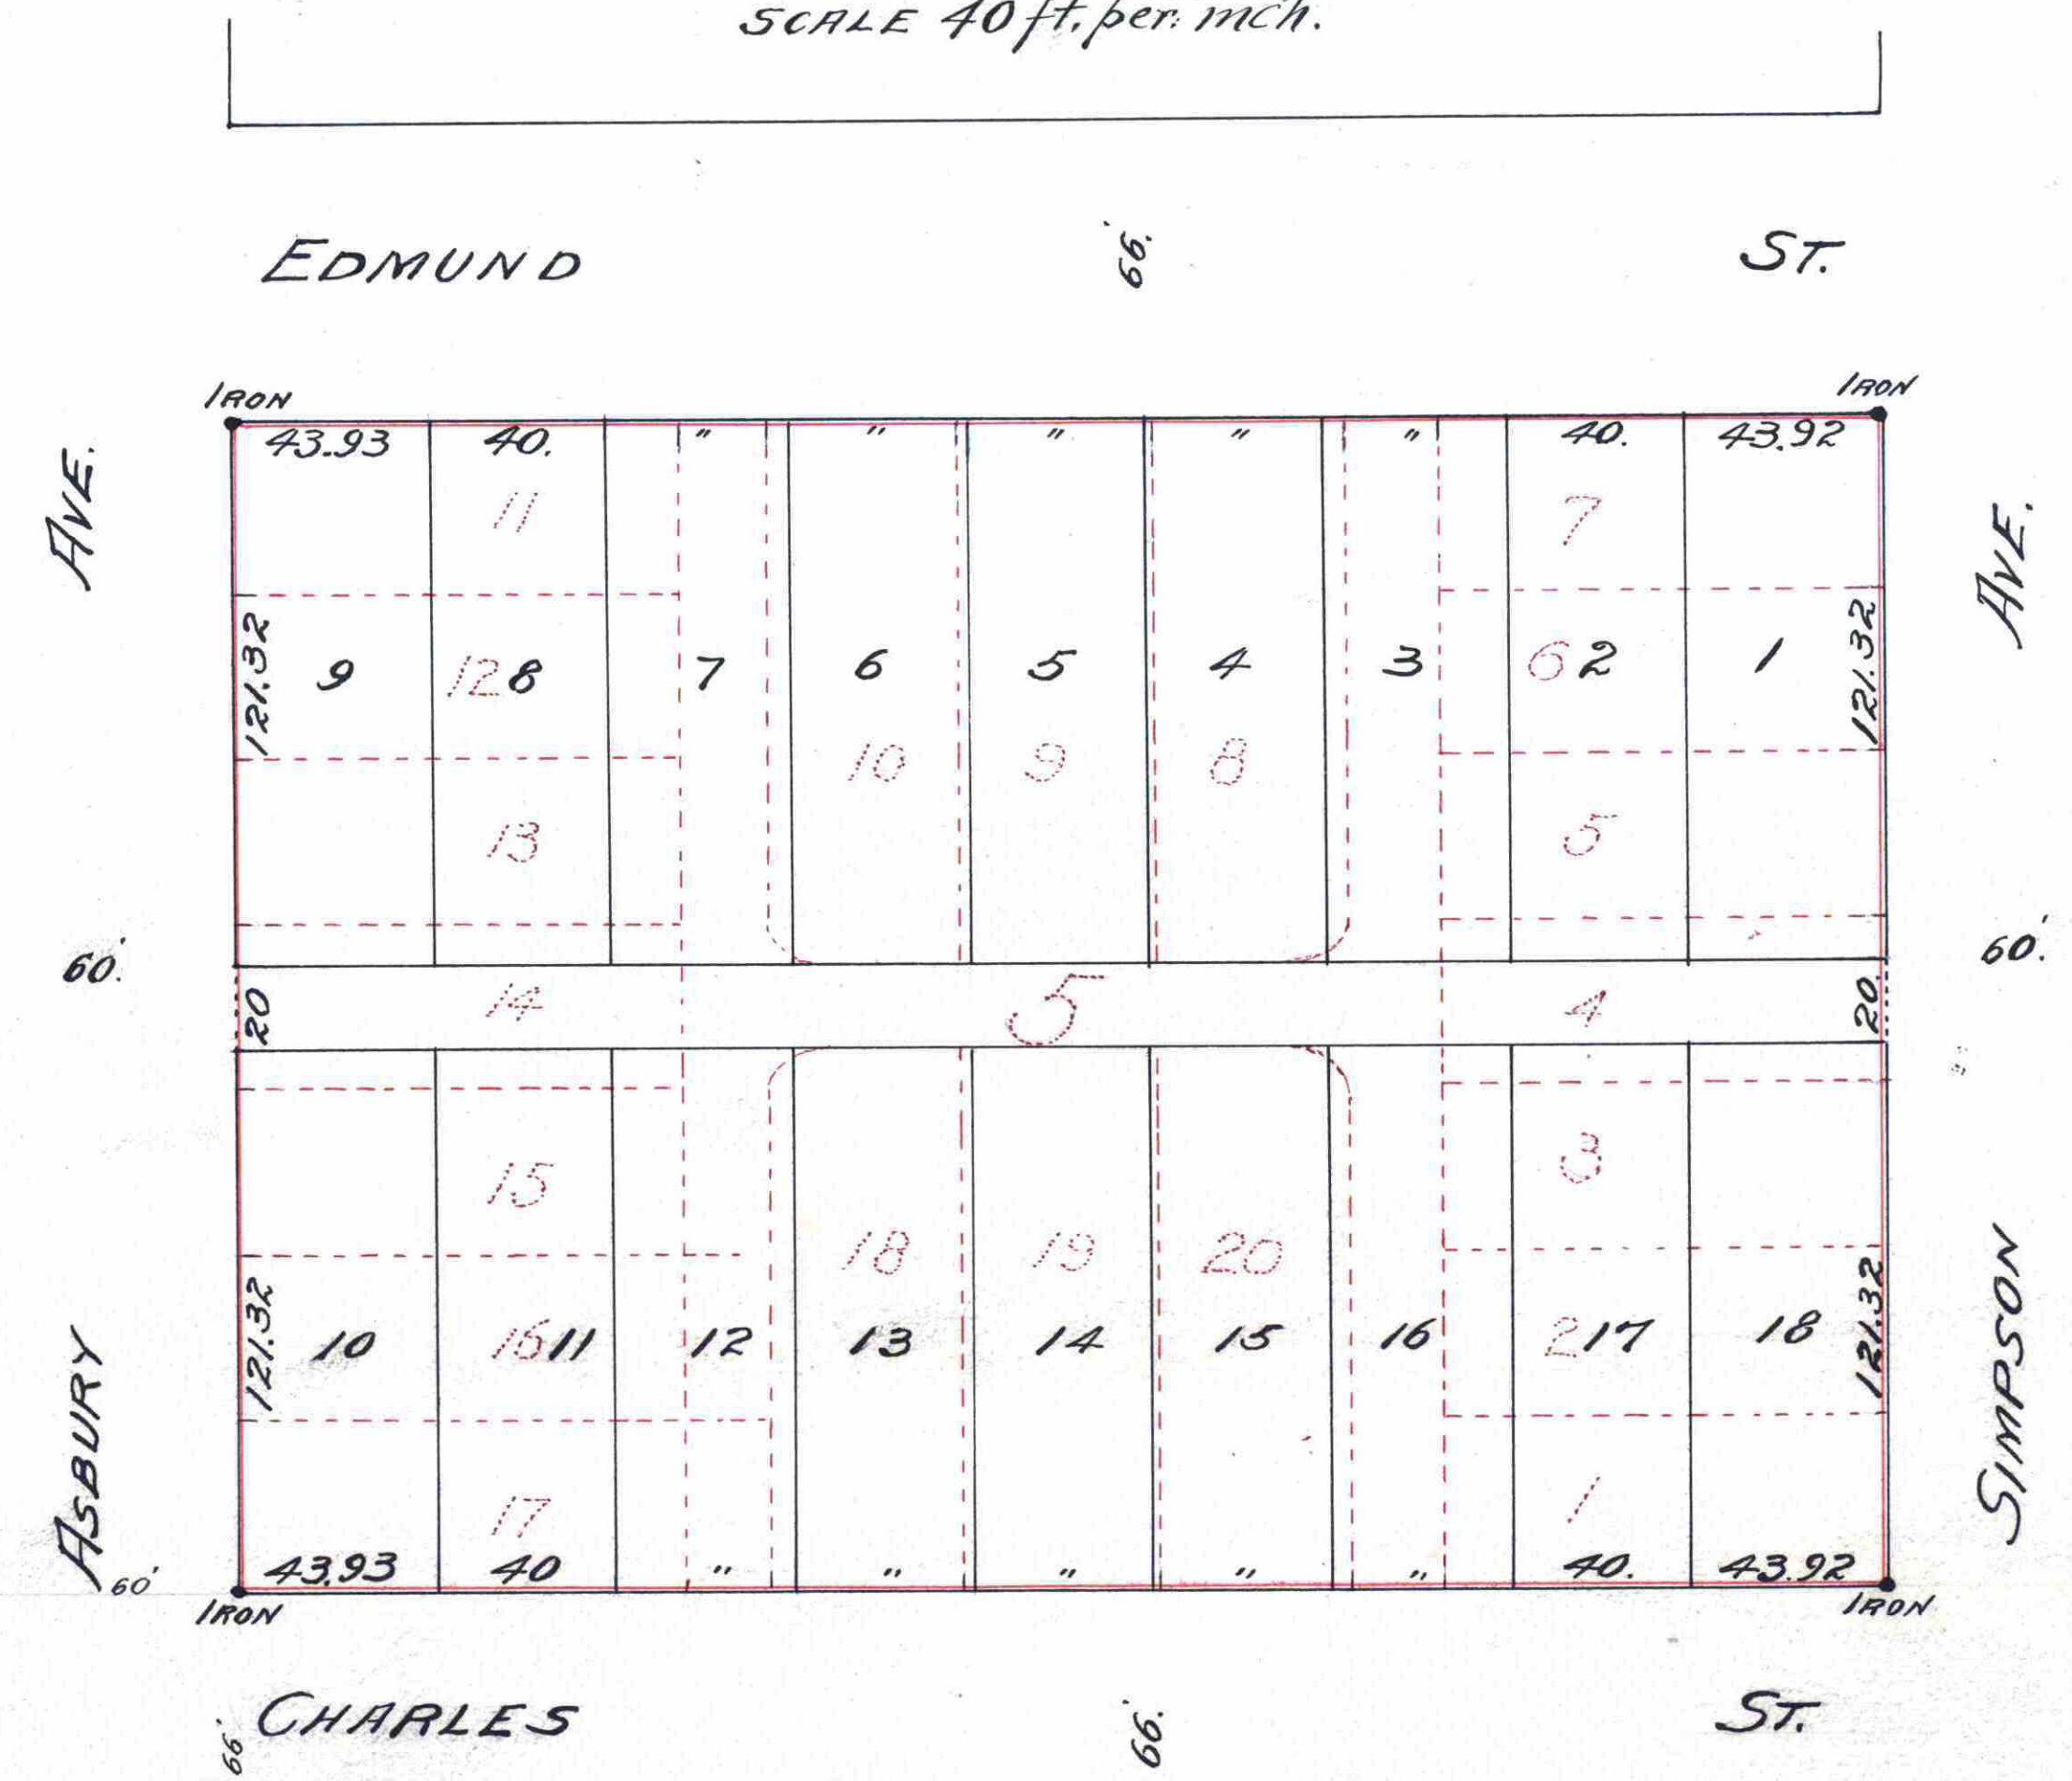 SCALE 40 ft. per. inch.
EDMUND 66.' ST.
IRON IRON
43.93 40. " " " " " 40. 43.92
AVE. AVE.
11 7
121.32 9 12 8 7 6 5 4 3 6 2 1 121.32
10 9 8
13 5
60.' 60.'
20 14 5 4 20.
15 3
18 19 20
121.32 10 16 11 12 13 14 15 16 2 17 18 121.32
ASBURY SIMPSON
17 1
43.93 40 " " " " " 40. 43.92
60'
IRON IRON
66' CHARLES 66.' ST.